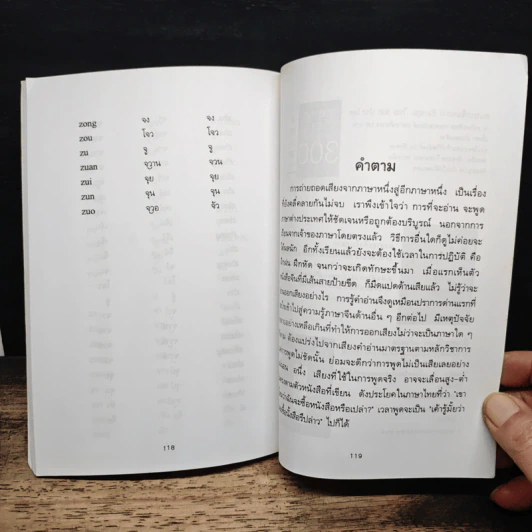 zong จง จง
zou โจว โจว
zu จู จู
zuan จวาน จวน
zui จุย จุย
zun จุน จุน
zuo จวอ จัว
118
คำตาม
การถ่ายถอดเสียงจากภาษาหนึ่งสู่อีกภาษาหนึ่ง เป็นเรื่อง
เราพึงเข้าใจว่า การที่จะอ่าน จะพูด
ภาษาต่างประเทศให้ชัดเจนหรือถูกต้องบริบูรณ์ นอกจากการ
เรียนจากเจ้าของภาษาโดยตรงแล้ว วิธีการอื่นใดก็ดูไม่ค่อยจะ
อีกทั้งเรียนแล้วยังจะต้องใช้เวลาในการปฏิบัติ คือ
ฝึกหัด จนกว่าจะเกิดทักษะขึ้นมา เมื่อแรกเห็นตัว
หนังสือจีนที่มีเส้นสายป้ายขีด ก็มืดแปดด้านเสียแล้ว ไม่รู้ว่าจะ
ออกเสียงอย่างไร การรู้คำอ่านจึงดูเหมือนปราการด่านแรกที่
เข้าไปสู่ความรู้ภาษาจีนด้านอื่น ๆ อีกต่อไป มีเหตุปัจจัย
อย่างเหลือเกินที่ทำให้การออกเสียงไม่ว่าจะเป็นภาษาใด ๆ
ต้องแปร่งไปจากเสียงคำอ่านมาตรฐานตามหลักวิชาการ
การพูดไม่ชัดนั้น ย่อมจะดีกว่าการพูดไม่เป็นเสียเลยอย่าง
อนึ่ง เสียงที่ใช้ในการพูดจริง อาจจะเลื่อนสูง-ต่ำ
ตามตัวหนังสือที่เขียน ดังประโยคในภาษาไทยที่ว่า "เขา
จะซื้อหนังสือหรือเปล่า?" เวลาพูดจะเป็น "เค้ารู้มั้ยว่า
ไปก็ได้
119